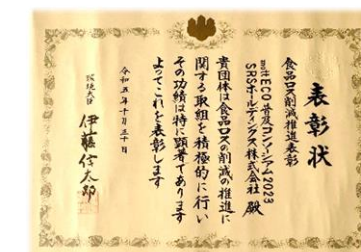 表彰状
食品ロス削減推進表彰
mottECO普及コンソーシアム2023
SRSホールディングス株式会社 殿
貴団体は食品ロスの削減の推進に
関する取組を積極的に行い
その功績は特に顕著であります
よってこれを表彰します
令和五年十月三十日
環境大臣 伊藤信太郎